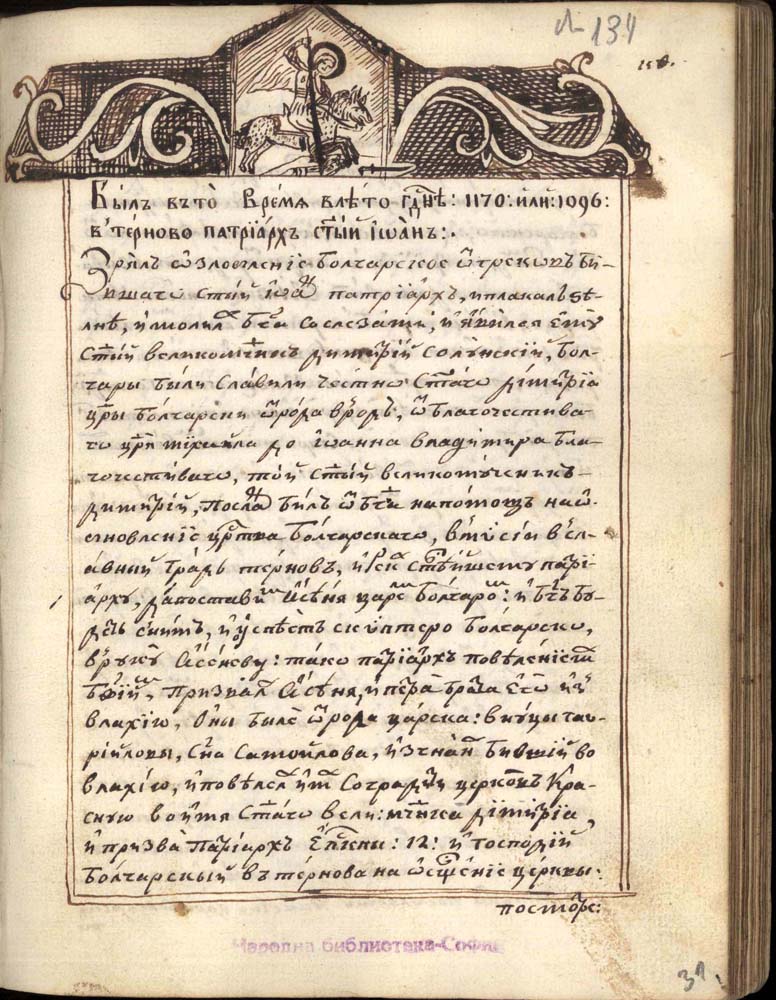 № 134
158.
Былъ въ то время влѣто гднѣ: 1170: или: 1096:
в' терново патрїархъ стый їωанъ:.
Зрѧлъ ѡзлобленїе болгарское ѿ грековъ би-
вшаго стый їωа патрїархъ, и плакалъ ѕѣ-
лнѣ, и молилъ бга со слезами, и ꙗвился емꙋ
стый великомчнкъ димитрїй солꙋнскїй, бол-
гары были славили честно стаго димитрїа
цры болгарски ѿ рода в родъ, ѿ благочестива-
го цра михаила до їωанна владимира бла-
гочестиваго, той стый великомꙋченикъ
димитрїй, посла былъ ѿ бга на помощь на ѡ-
бновленїе цртва болгарскаго, в мисїи в сл-
авный градъ терновъ, и рек стѣйшемꙋ патрї-
архꙋ, да поставит асѣня царе болгаро: и бгъ бꙋ-
детъ сним, и ꙋспѣетъ скѵптеро болгарско,
в рꙋкꙋ асеневꙋ: тако патрїархъ повеленїем
бжїим, призвал асѣня, и петра брата его из
влахїю, оны были ѿ рода царска: внꙋцы гав-
рїиловы, сна самоилова, изгнан бившїй во
влахїю, и повелел им соградити церковъ кра-
снꙋю во имя стаго вели: мчнка димитрїа,
и призва патрїархъ епкпы: 12: и господїй
болгарскый въ тернова на ѡсщенїе церквы:
посторе:
Народна библиотека-София
31.